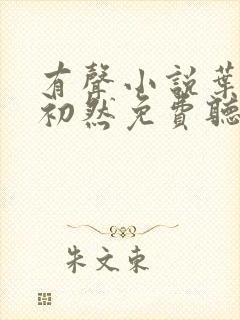 有聲小說葉
初然免費聽
朱文東